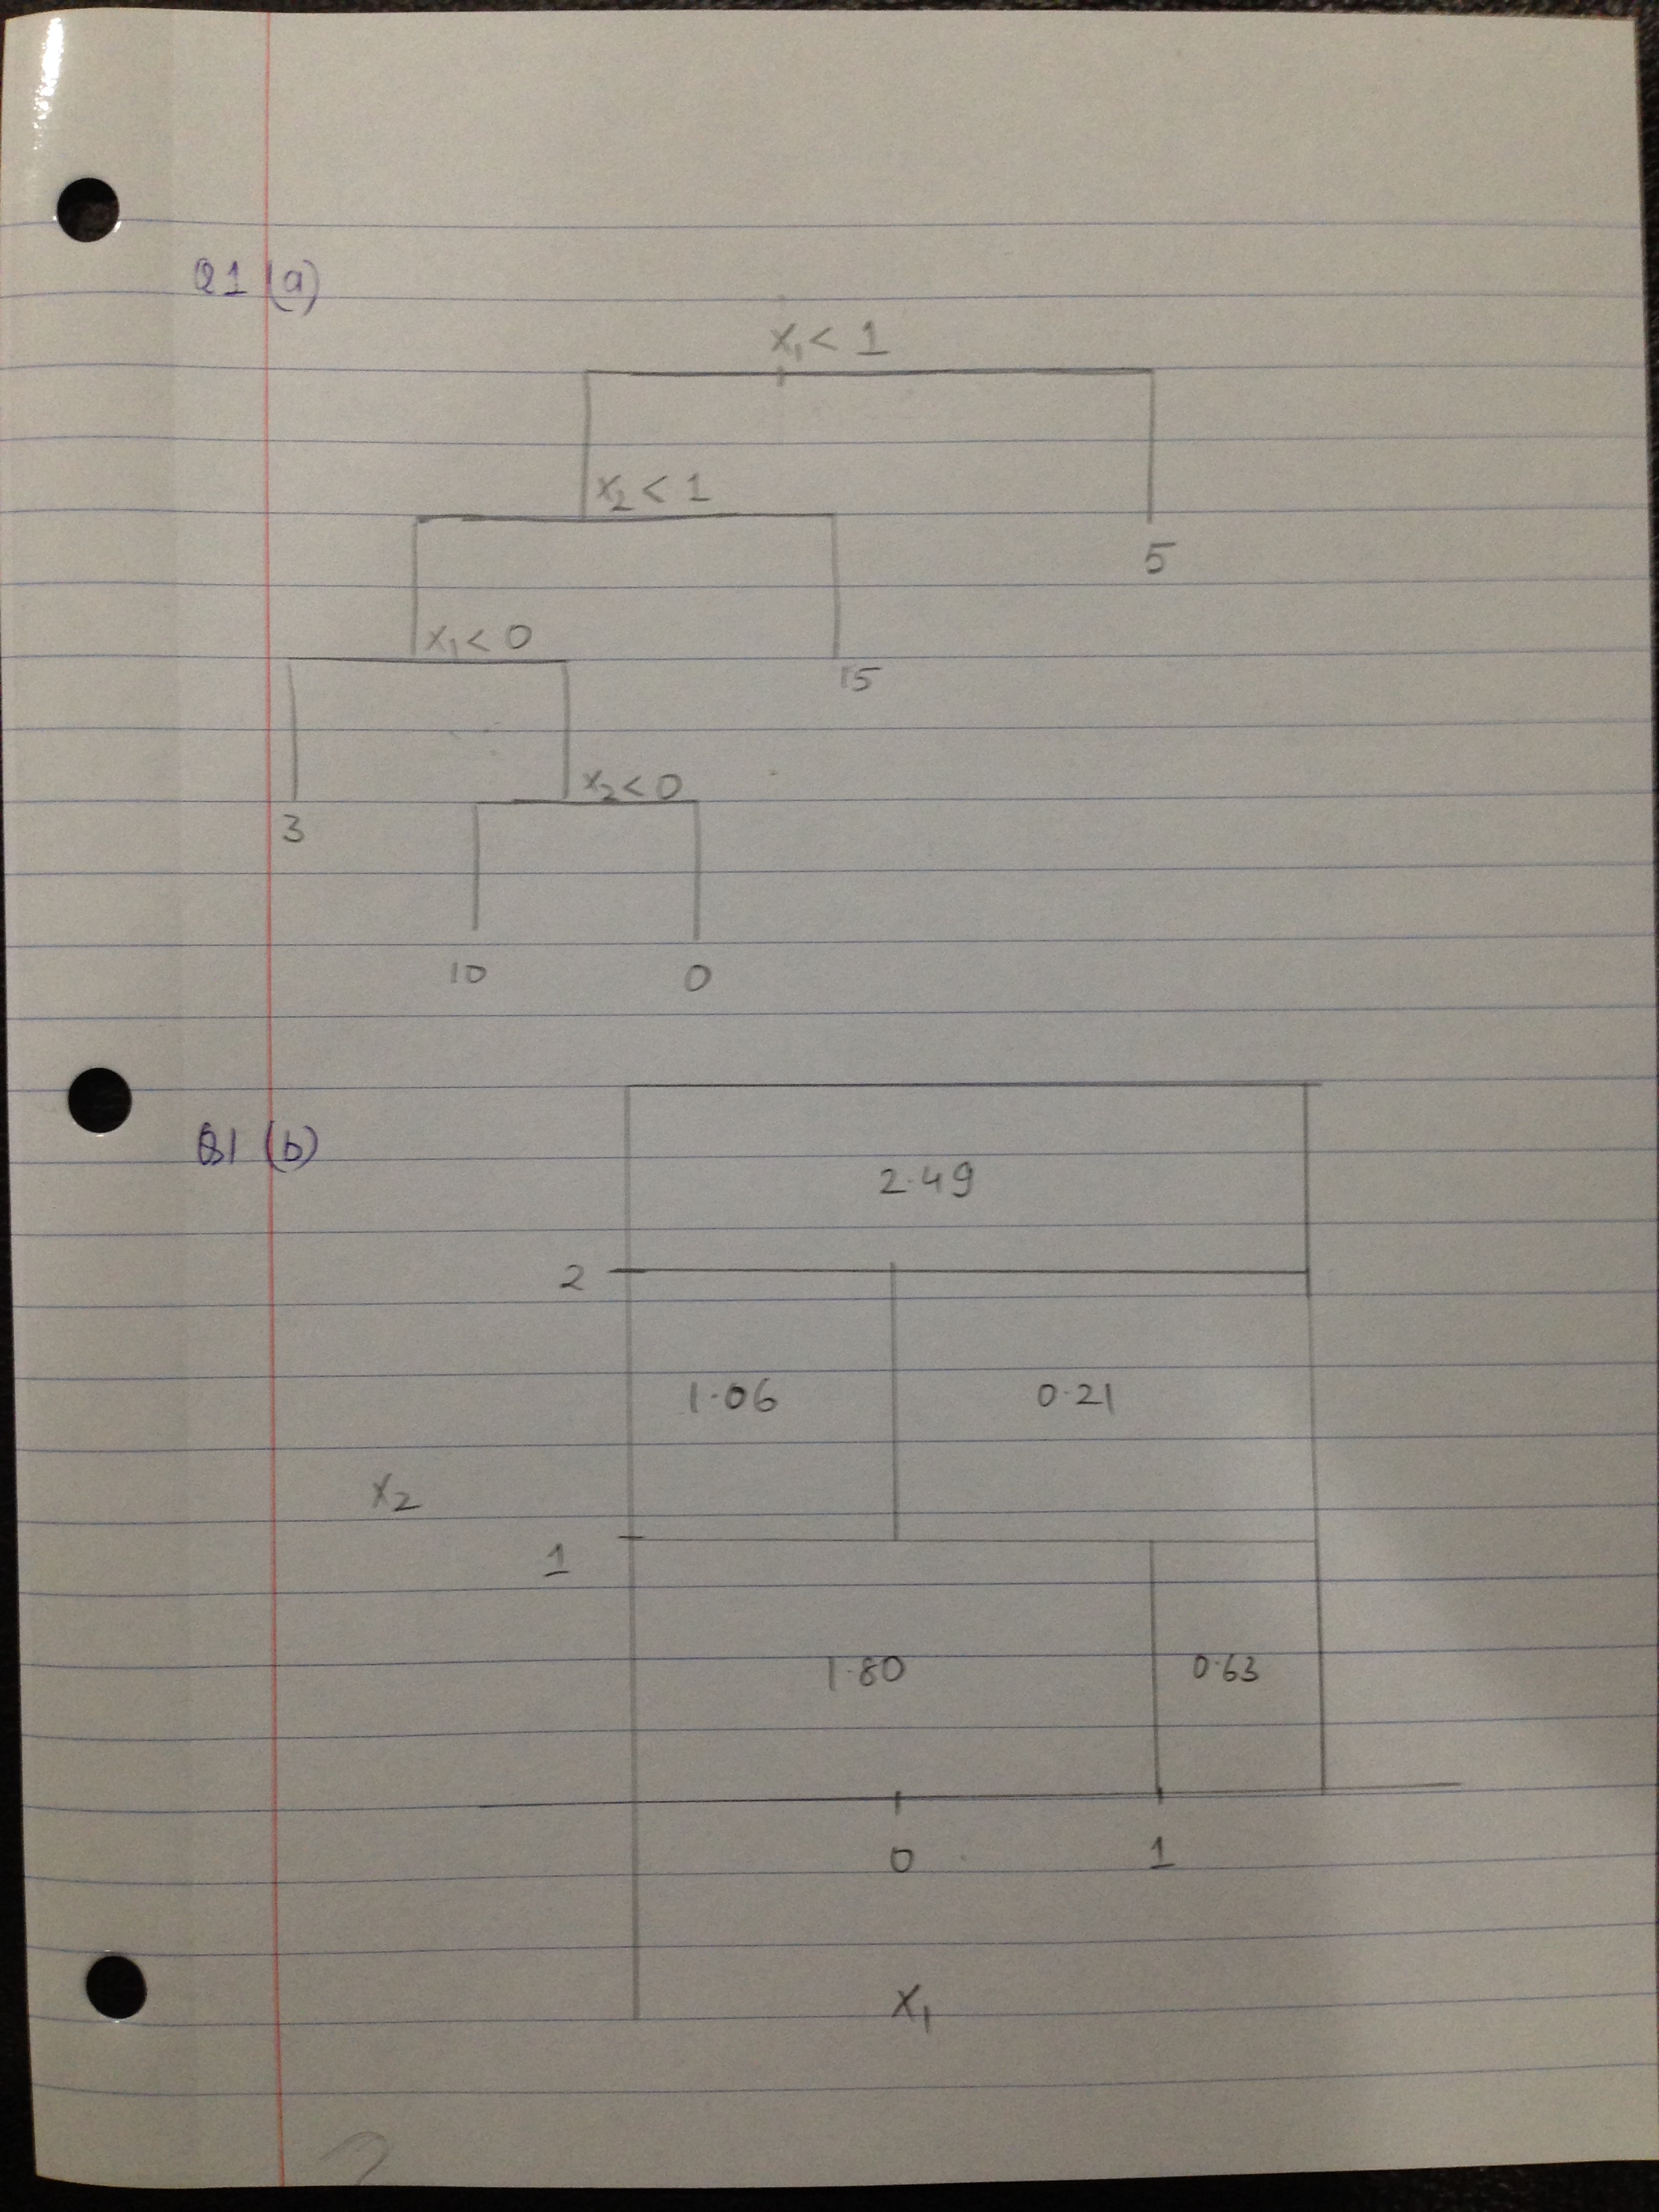 Q1 (a)
X₁ < 1
X₂ < 1
5
X₁ < 0
15
X₂ < 0
3
10 0
Q1 (b)
2.49
2
1.06 0.21
X₂
1
1.80 0.63
0 1
X₁
2